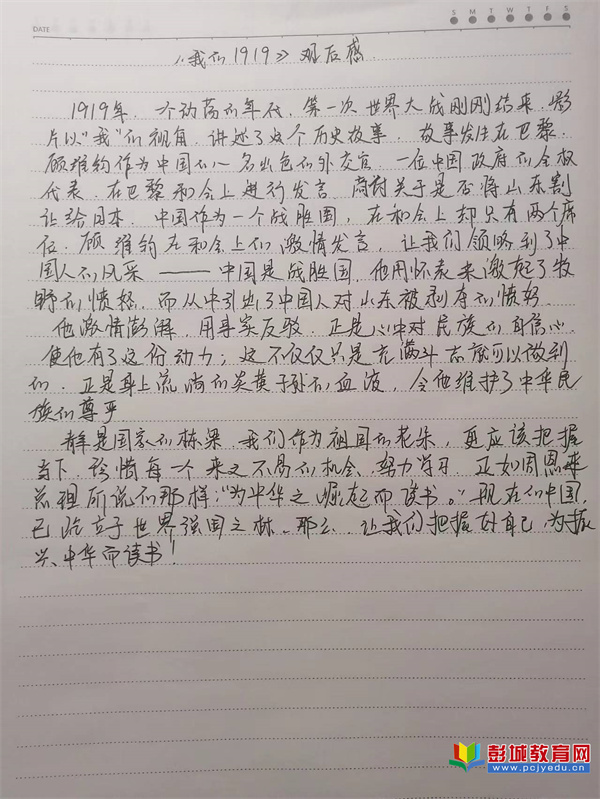 DATE
S M T W T F S
《我的1919》观后感.
1919年，一个动荡的年代，第一次世界大战刚刚结束.影
片以"我"的视角，讲述了这个历史故事，故事发生在巴黎.
顾维钧作为中国的一名出色的外交官，一位中国政府的全权
代表，在巴黎和会上进行发言，商讨关于是否将山东割
让给日本.中国作为一个战胜国，在和会上却只有两个席
位.顾维钧在和会上的激情发言，让我们领略到了中
国人的风采——中国是战胜国，他用怀表来激起了牧
野的愤怒，而从中引出了中国人对山东被剥夺的愤怒.
他激情澎湃，用事实反驳.正是心中对民族的自信心.
使他有了这份动力；这不仅仅只是充满斗志就可以做到
的.正是身上流淌的炎黄子孙的血液，令他维护了中华民
族的尊严
青年是国家的栋梁，我们作为祖国的花朵，更应该把握
当下，珍惜每一个来之不易的机会，努力学习，正如周恩来
总理所说的那样："为中华之崛起而读书。"现在的中国，
已屹立于世界强国之林，那么，让我们把握好自己，为振
兴中华而读书！
彭城教育网
www.pcjyedu.cn